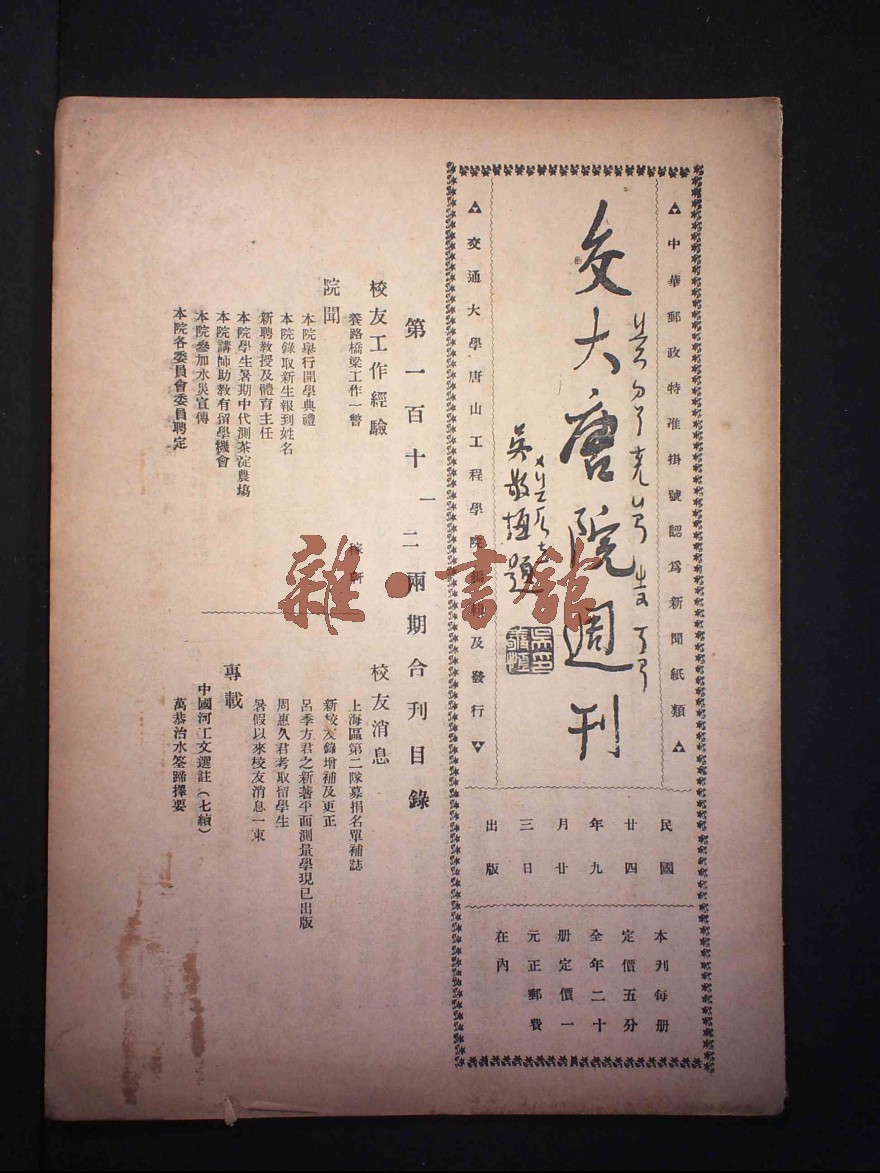 ▲中華郵政特准掛號認爲新聞紙類▲
交大唐院週刊
吳敬恆題
▲交通大學唐山工程學院編輯及發行▼
民國
廿四
年九
月廿
三日
出版
本刊每册
定價五分
全年二十
册定價一
元正郵費
在內
第一百十一二兩期合刊目錄
校友工作經驗
養路橋梁工作一瞥
院聞
本院舉行開學典禮
本院錄取新生報到姓名
新聘教授及體育主任
本院學生暑期中代測茶淀農塲
本院講師助教有留學機會
本院參加水災宣傳
本院各委員會委員聘定
校友消息
上海區第二隊募捐名單補誌
新校友錄增補及更正
呂季方君之新著平面測量學現已出版
周惠久君考取留學生
暑假以來校友消息一束
專載
中國河工文選註（七續）
萬恭治水筌蹄擇要
雜·書館